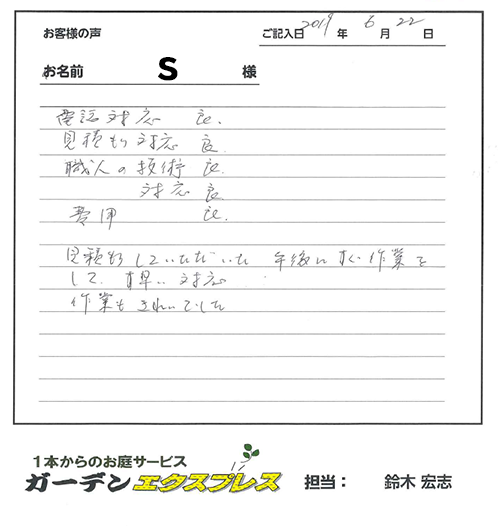 お客様の声
ご記入日 2019 年 6 月 22 日
お名前 S 様
電話対応 良.
見積もり対応 良
職人の技術 良.
対応 良.
費用 良.
見積もりしていただいた 午後にすぐ作業を
して. 早い対応
作業もきれいでした
1本からのお庭サービス
ガーデンエクスプレス 担当： 鈴木 宏志